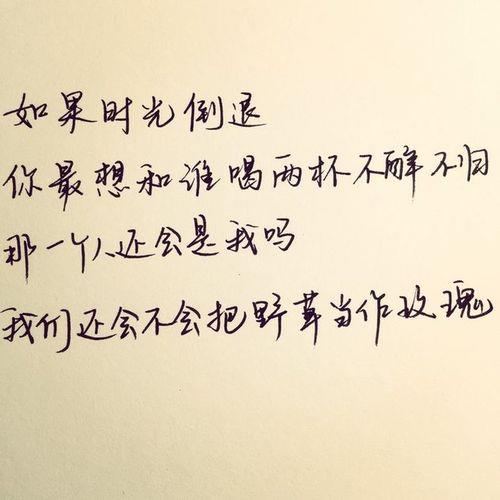 如果时光倒退
你最想和谁喝两杯不醉不归
那一个人还会是我吗
我们还会不会把野草当作玫瑰